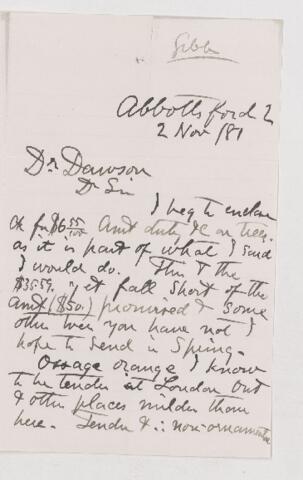 Gibb
Abbottsford Q
2 Nov /81
Dr Dawson
Dr Sir
I beg to enclose
Ck for $6 55/100 Amt duty &c on trees.
as it is part of what I said
I would do. This & the
$35.59. yet fall short of the
amt ($50.) promised & some
other trees you have not I
hope to send in Spring.
Osage orange I know
to be tender at London Ont
& other places milder than
here. Tender & ∴ non-ornamental